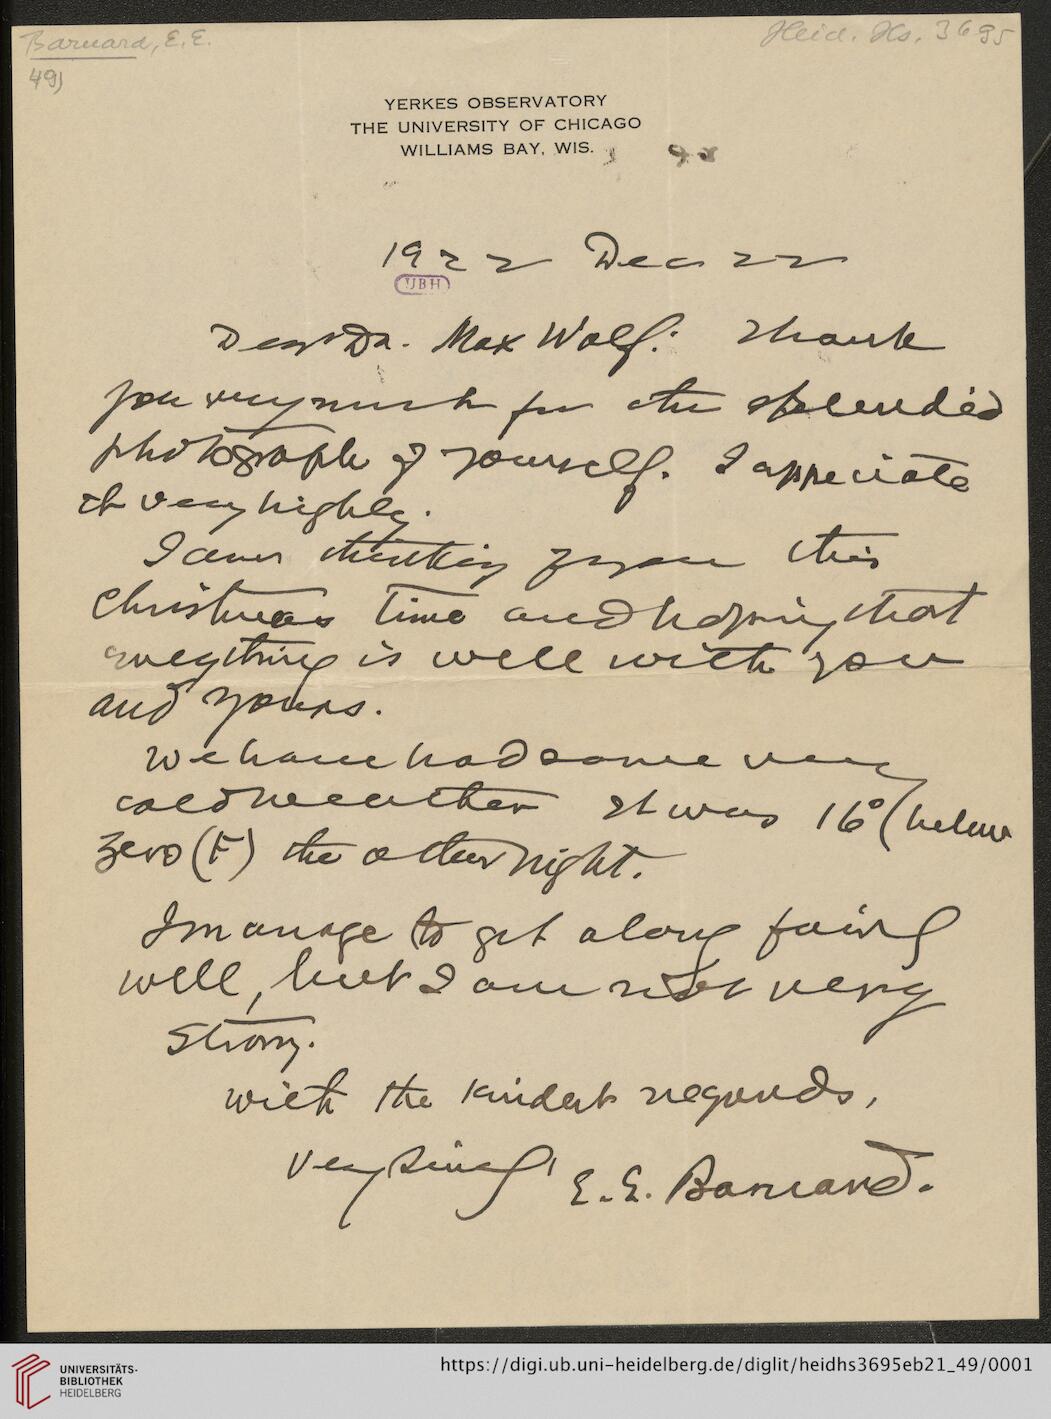 Barnard, E. E.
49)
Heid. Hs. 3695
YERKES OBSERVATORY
THE UNIVERSITY OF CHICAGO
WILLIAMS BAY, WIS.
1922 Dec 22
UBH
Dear Dr. Max Wolf: Thank
you very much for the splendid
photograph of yourself. I appreciate
it very highly.
I am thinking of you this
Christmas time and hoping that
everything is well with you
and yours.
We have had some very
cold weather It was 16° (below
zero (F) the other night.
I manage to get along fairly
well, but I am not very
strong.
With the kindest regards,
Very sincerely
E. E. Barnard.
UNIVERSITÄTS-
BIBLIOTHEK
HEIDELBERG
https://digi.ub.uni-heidelberg.de/diglit/heidhs3695eb21_49/0001